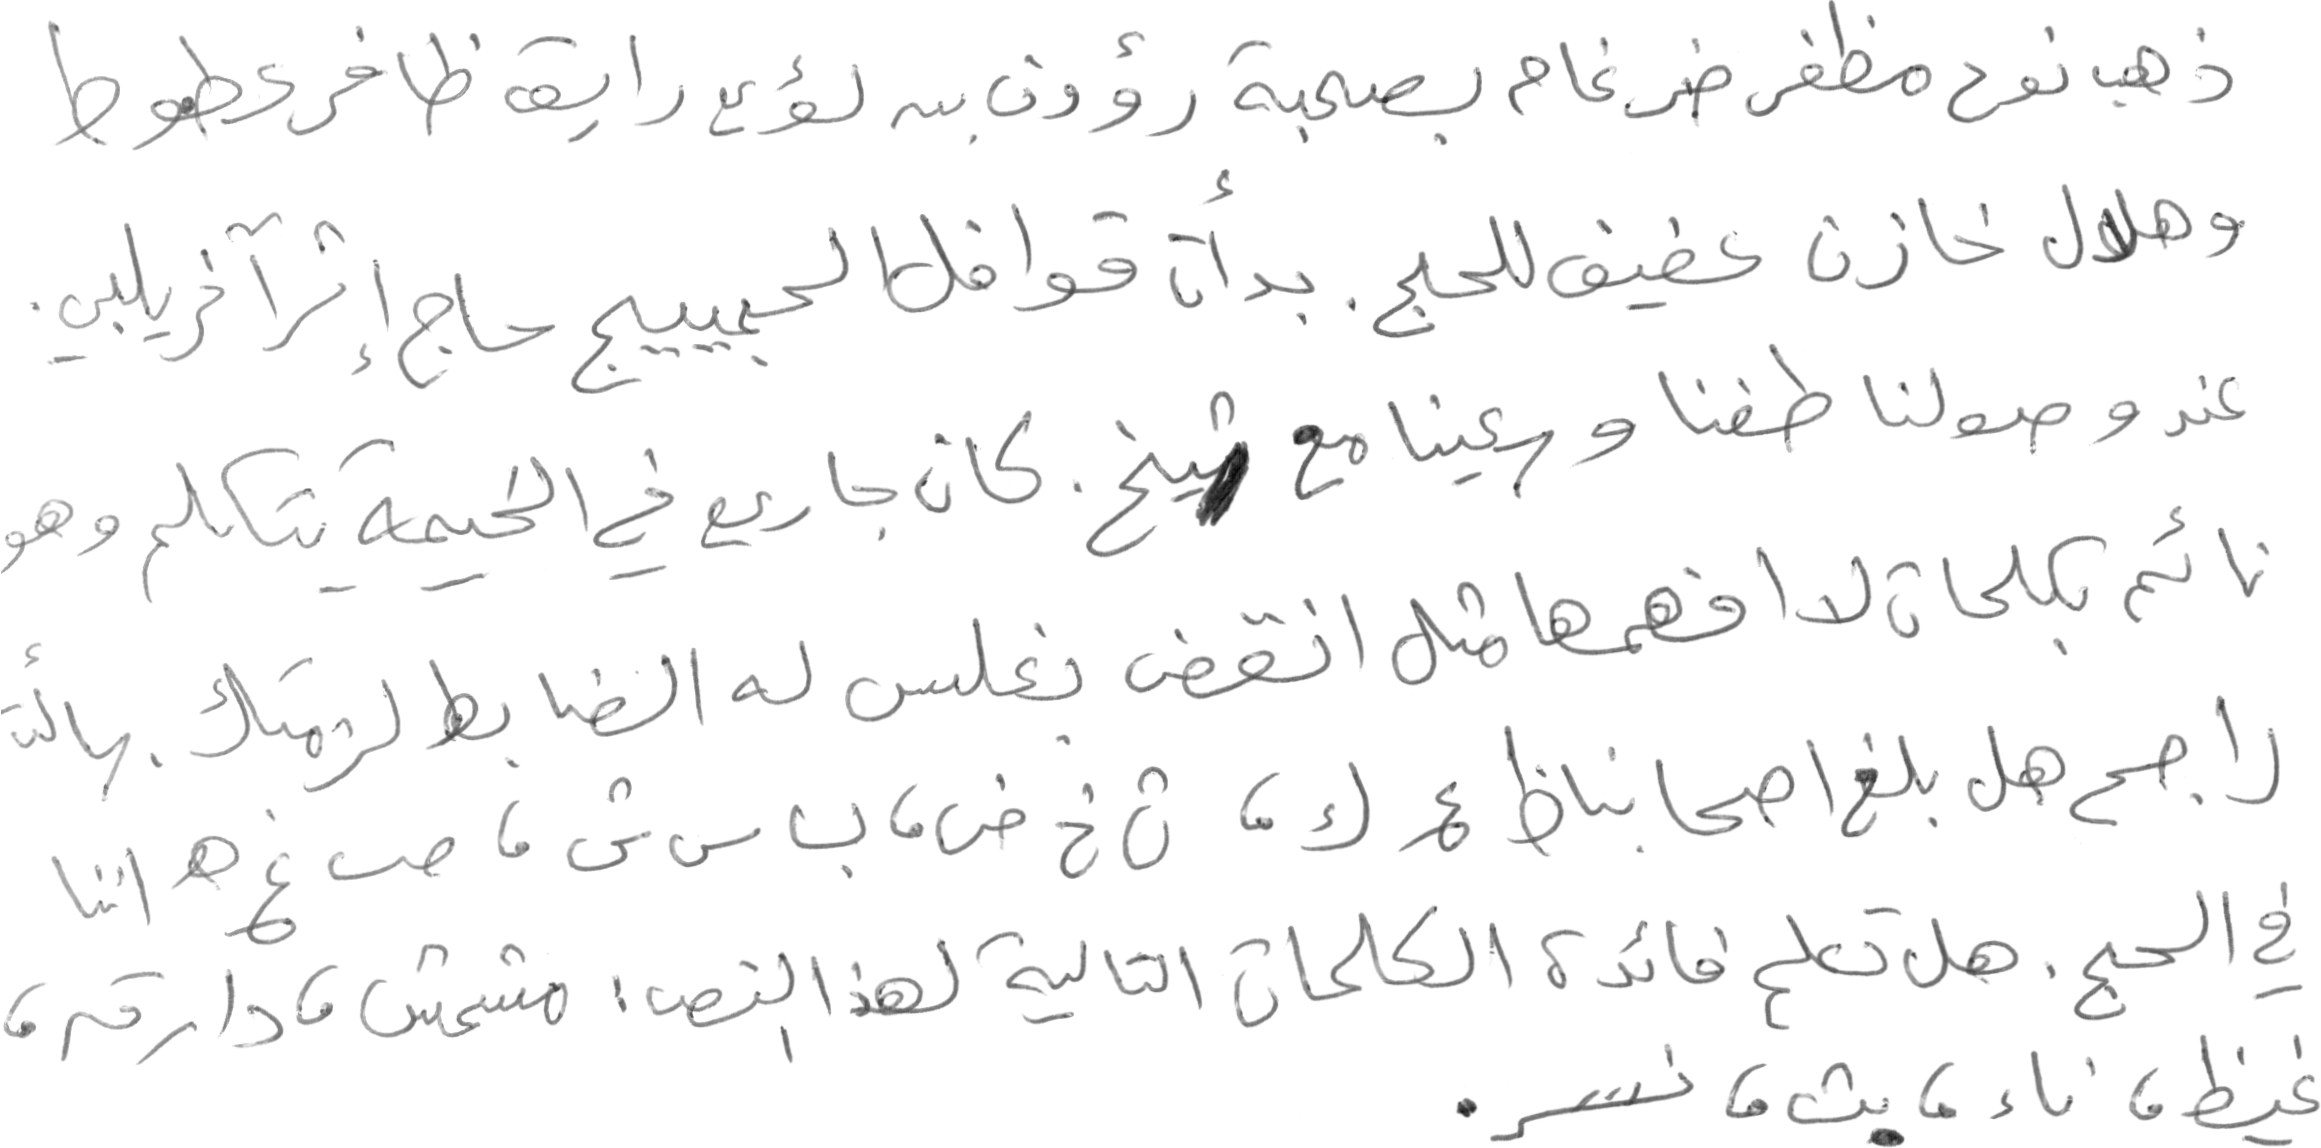 ذهب نوح مظفر ضرغام بصحبة رؤوف بن لؤي رايق ظافر عطوط
وهلال خازن عفيف للحج. بدأت قوافل الحجيييج حاج إثر آخر يلبي.
عند وصولنا طفنا وسعينا مع شيخ. كان جاري في الخيمة يتكلم وهو
نائم بكلمات لا افهمها مثل انقض بغلس له الضابط لزمتك. سألت
راجح هل بلغ اصحابنا ظ ع ك، ث خ ض، ب س ش، ص غ ه اننا
في الحج. هل تعلم فائدة الكلمات التالية لهذا النص: مشمش، دار قم،
غيظ، ناء، بث، نسر.